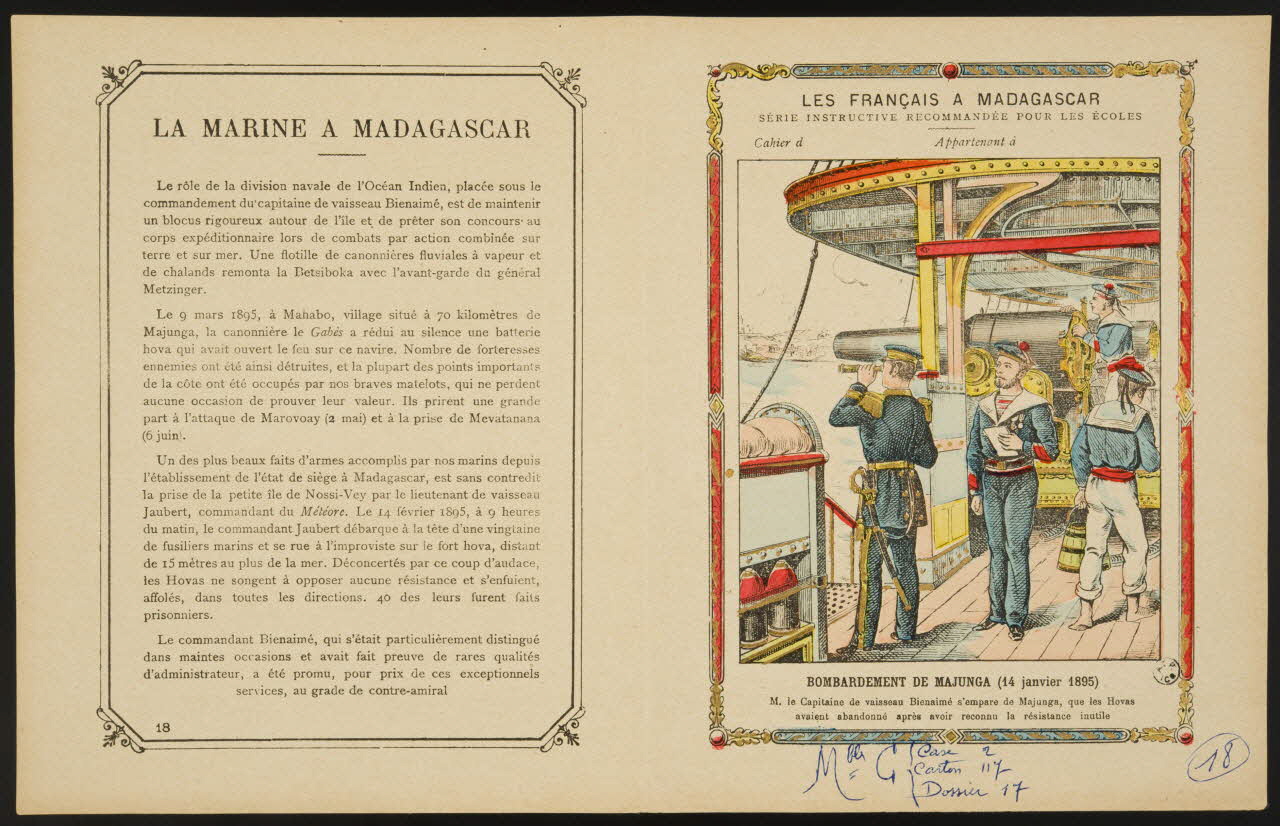 LA MARINE A MADAGASCAR
Le rôle de la division navale de l'Océan Indien, placée sous le
commandement du capitaine de vaisseau Bienaimé, est de maintenir
un blocus rigoureux autour de l'île et de prêter son concours au
corps expéditionnaire lors de combats par action combinée sur
terre et sur mer. Une flotille de canonnières fluviales à vapeur et
de chalands remonta la Betsiboka avec l'avant-garde du général
Metzinger.
Le 9 mars 1895, à Mahabo, village situé à 70 kilomètres de
Majunga, la canonnière le Gabès a rédui au silence une batterie
hova qui avait ouvert le feu sur ce navire. Nombre de forteresses
ennemies ont été ainsi détruites, et la plupart des points importants
de la côte ont été occupés par nos braves matelots, qui ne perdent
aucune occasion de prouver leur valeur. Ils prirent une grande
part à l'attaque de Marovoay (2 mai) et à la prise de Mevatanana
(6 juin).
Un des plus beaux faits d'armes accomplis par nos marins depuis
l'établissement de l'état de siège à Madagascar, est sans contredit
la prise de la petite île de Nossi-Vey par le lieutenant de vaisseau
Jaubert, commandant du Météore. Le 14 février 1895, à 9 heures
du matin, le commandant Jaubert débarque à la tête d'une vingtaine
de fusiliers marins et se rue à l'improviste sur le fort hova, distant
de 15 mètres au plus de la mer. Déconcertés par ce coup d'audace,
les Hovas ne songent à opposer aucune résistance et s'enfuient,
affolés, dans toutes les directions. 40 des leurs furent faits
prisonniers.
Le commandant Bienaimé, qui s'était particulièrement distingué
dans maintes occasions et avait fait preuve de rares qualités
d'administrateur, a été promu, pour prix de ces exceptionnels
services, au grade de contre-amiral
18
LES FRANÇAIS A MADAGASCAR
SÉRIE INSTRUCTIVE RECOMMANDÉE POUR LES ÉCOLES
Cahier d Appartenant à
BOMBARDEMENT DE MAJUNGA (14 janvier 1895)
M. le Capitaine de vaisseau Bienaimé s'empare de Majunga, que les Hovas
avaient abandonné après avoir reconnu la résistance inutile
Mble G
Case 2
Carton 117
Dossier 17
18